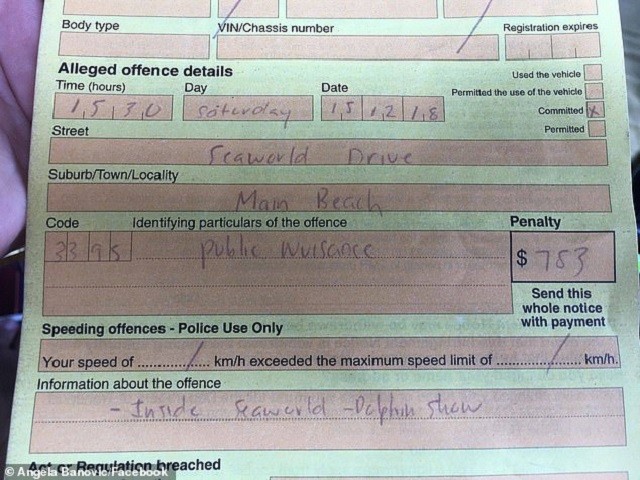 Body type VIN/Chassis number Registration expires
Alleged offence details
Used the vehicle
Time (hours) Day Date
Permitted the use of the vehicle
1530 Saturday 151218
Committed x
Street
Permitted
Seaworld Drive
Suburb/Town/Locality
Main Beach
Code Identifying particulars of the offence Penalty
3395 public nuisance $ 783
Send this
whole notice
with payment
Speeding offences - Police Use Only
Your speed of .................. km/h exceeded the maximum speed limit of ..................... km/h.
Information about the offence
- Inside Seaworld - Dolphin Show
Act or Regulation breached
© Angela Banovic/Facebook